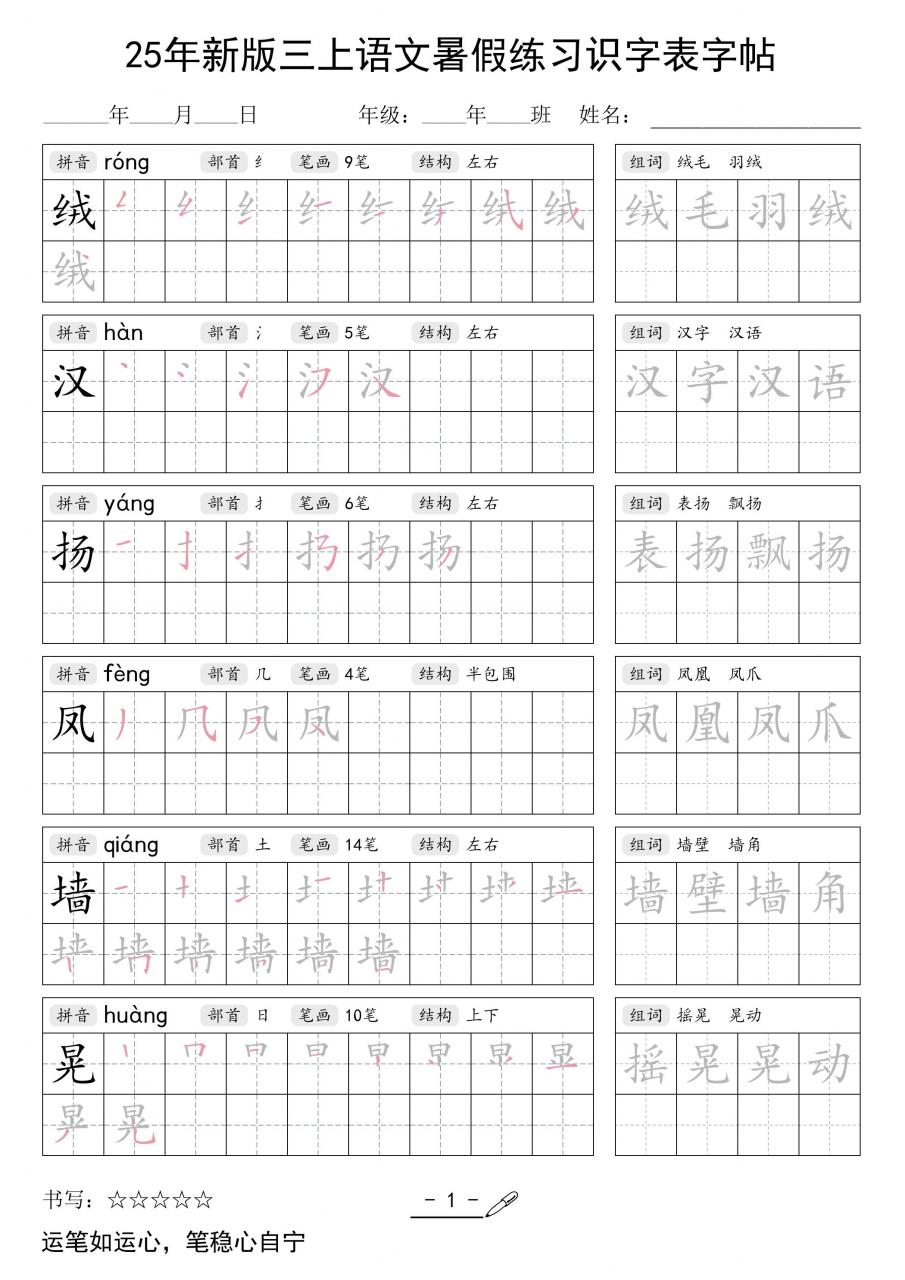 25年新版三上语文暑假练习识字表字帖
______年____月____日 年级：____年____班 姓名：____________________
拼音 róng 部首 纟 笔画 9笔 结构 左右 组词 绒毛 羽绒
绒 绒 毛 羽 绒
绒
拼音 hàn 部首 氵 笔画 5笔 结构 左右 组词 汉字 汉语
汉 汉 字 汉 语
拼音 yáng 部首 扌 笔画 6笔 结构 左右 组词 表扬 飘扬
扬 表 扬 飘 扬
拼音 fèng 部首 几 笔画 4笔 结构 半包围 组词 凤凰 凤爪
凤 凤 凰 凤 爪
拼音 qiáng 部首 土 笔画 14笔 结构 左右 组词 墙壁 墙角
墙 墙 壁 墙 角
墙
拼音 huàng 部首 日 笔画 10笔 结构 上下 组词 摇晃 晃动
晃 摇 晃 晃 动
晃
书写：☆☆☆☆☆ - 1 -
运笔如运心，笔稳心自宁